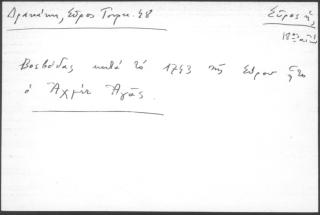 Δρακάκη, Σῦρος Τουρκ. 48
Σῦρος ἡ,
18ος αἰών
Βοεβόδας κατά τό 1743 τῆς Σύρου ἦτο
ὁ Ἀχμέτ Ἀγᾶς.